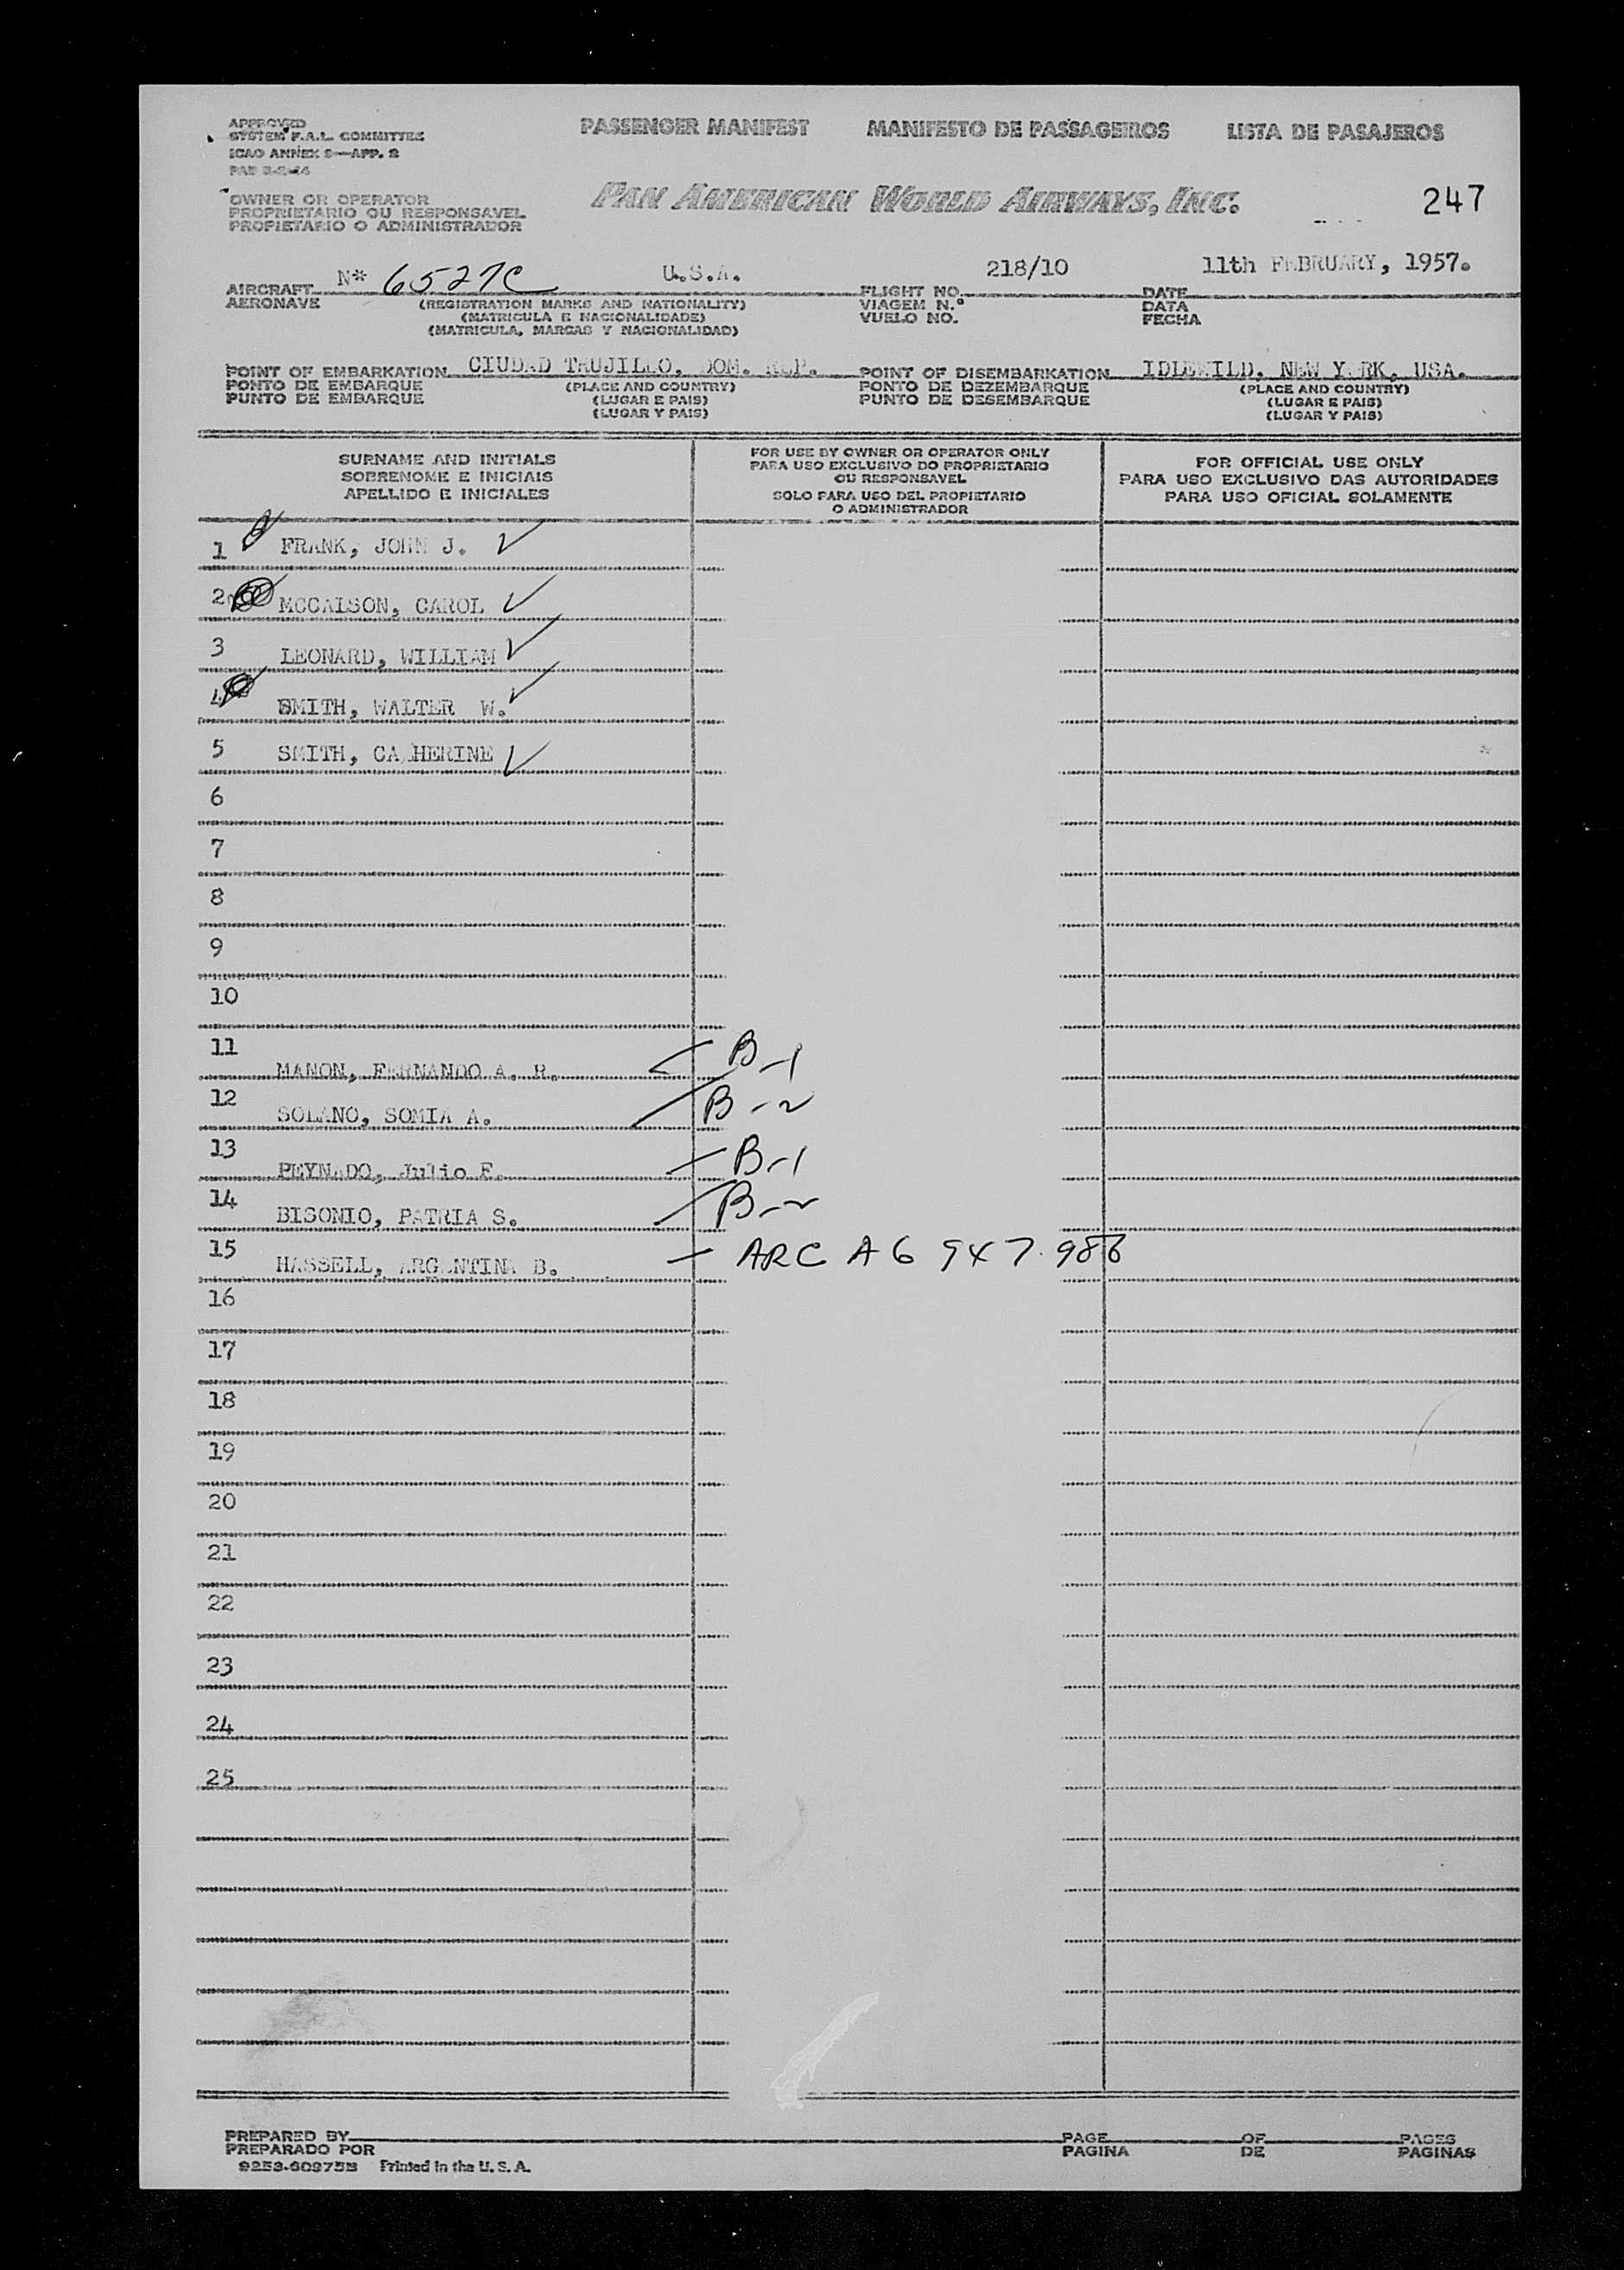 APPROVED
SYSTEM F.A.L. COMMITTEE
ICAO ANNEX 9—APP. 2
PASSENGER MANIFEST MANIFESTO DE PASSAGEIROS LISTA DE PASAJEROS
OWNER OR OPERATOR
PROPRIETARIO OU RESPONSAVEL
PROPIETARIO O ADMINISTRADOR
PAN AMERICAN WORLD AIRWAYS, INC.
247
AIRCRAFT N* 6527C U.S.A. FLIGHT NO. 218/10 DATE 11th FEBRUARY, 1957.
AERONAVE (REGISTRATION MARKS AND NATIONALITY) VIAGEM N.º DATA
(MATRICULA E NACIONALIDADE) VUELO NO. FECHA
(MATRICULA, MARCAS Y NACIONALIDAD)
POINT OF EMBARKATION CIUDAD TRUJILLO, DOM. REP. POINT OF DISEMBARKATION IDLEWILD, NEW YORK, USA.
PONTO DE EMBARQUE (PLACE AND COUNTRY) PONTO DE DEZEMBARQUE (PLACE AND COUNTRY)
PUNTO DE EMBARQUE (LUGAR E PAIS) PUNTO DE DESEMBARQUE (LUGAR E PAIS)
(LUGAR Y PAIS) (LUGAR Y PAIS)
SURNAME AND INITIALS
SOBRENOME E INICIAIS
APELLIDO E INICIALES
FOR USE BY OWNER OR OPERATOR ONLY
PARA USO EXCLUSIVO DO PROPRIETARIO
OU RESPONSAVEL
SOLO PARA USO DEL PROPIETARIO
O ADMINISTRADOR
FOR OFFICIAL USE ONLY
PARA USO EXCLUSIVO DAS AUTORIDADES
PARA USO OFICIAL SOLAMENTE
1 FRANK, JOHN J. ✓
2 MCCALSON, CAROL ✓
3 LEONARD, WILLIAM ✓
4 SMITH, WALTER W. ✓
5 SMITH, CA HERINE ✓
6
7
8
9
10
11 MANON, FERNANDO A. R. B-1
12 SOLANO, SOMIA A. B-2
13 PEYNADO, Julio F. B-1
14 BISONIO, PATRIA S. B-2
15 HASSELL, ARGENTINA B. ARC A6 947.986
16
17
18
19
20
21
22
23
24
25
PREPARED BY PAGE OF PAGES
PREPARADO POR PAGINA DE PAGINAS
9253-60975B Printed in the U.S.A.